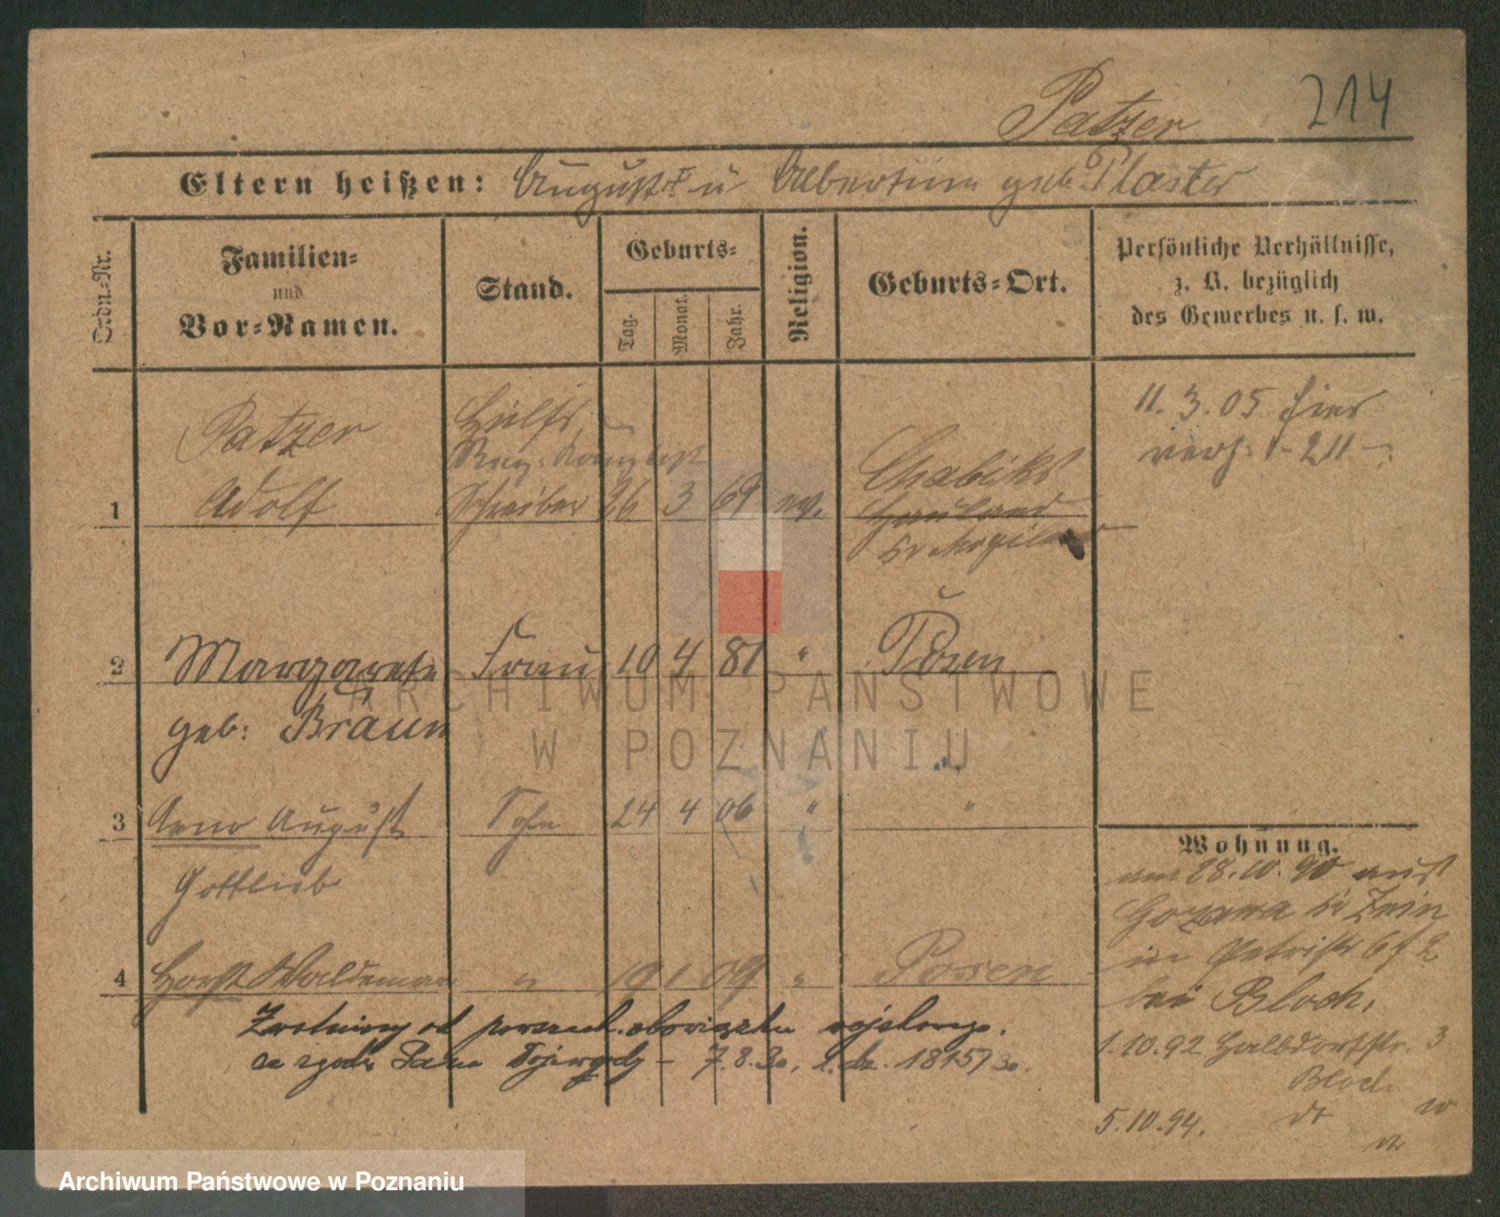 Patzer 214
Eltern heißen: August † u Albertine geb. Plaster
Ordn.-Nr.
Familien-
und
Vor-Namen.
Stand.
Geburts-
Tag.
Monat.
Jahr.
Religion.
Geburts-Ort.
Persönliche Verhältnisse,
z. B. bezüglich
des Gewerbes u. s. w.
Patzer
Hülfs
1 Adolf Schreiber 26 3 69 ev.
Chabsko
Hauland
Kr Mogilno
11. 3. 05 hier
verh:
2 Margarete Frau 10 4 81 " Posen
geb: Braun
3 Arno August Sohn 24 4 06 " "
Gottlieb
4 Horst Waldemar " 19 1 09 " Posen
Zwolniony od powszech. obowiązku wojskowego.
7.8.30, l.dz. 1815/30.
Wohnung.
am 28.10.90 aus
Gozawa Kr Znin
in Petristr 6
bei Bloch,
1.10.92 Halbdorfstr. 3
Bloch
5.10.94. dt
ARCHIWUM PAŃSTWOWE
W POZNANIU
Archiwum Państwowe w Poznaniu